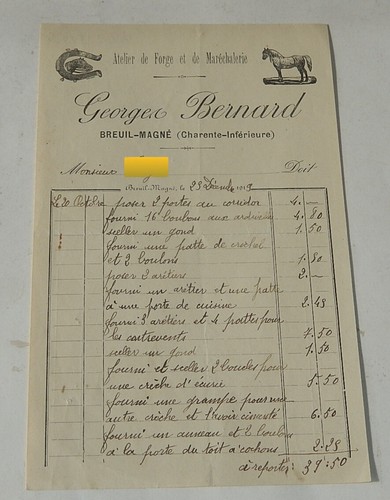 Atelier de Forge et de Maréchalerie
Georges Bernard
BREUIL-MAGNÉ (Charente-Inférieure)
Monsieur Doit
Breuil-Magné, le 23 19
Le 20 poser 2 portes au corridor 4 —
fourni 16 boulons aux 4.80
sceller un gond 1.50
fourni une patte de crochet
et 2 boulons 1.80
poser 2 arêtiers 2. —
fourni un arêtier et une patte
à une porte de cuisine 2.48
fourni 3 arêtiers et 4 pattes pour
les contrevents 7.50
sceller un gond 1.50
fourni et sceller 2 boucles pour
une crèche d'écurie 5.50
fourni une grampe pour une
autre crèche et l'avoir 6.50
fourni un anneau et 2 boulons
à la porte du toit à cochons 2.25
à reporter: 39.50